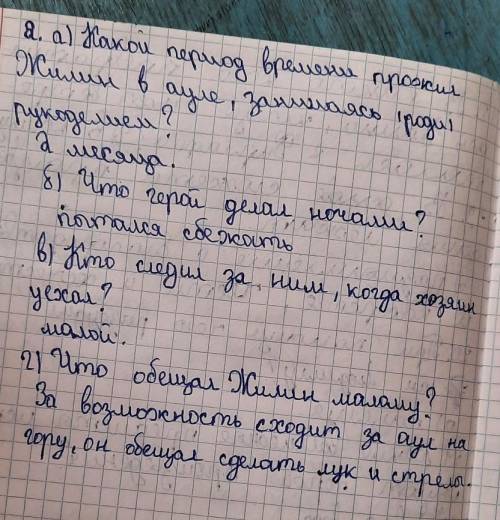 2. а) Какой период времени прожил
Жилин в ауле, занимаясь (роди)
рукоделием?
2 месяца.
б) Что герой делал ночами?
пытался сбежать
в) Кто следил за ним, когда хозяин
уехал?
малой.
г) Что обещал Жилин малому?
За возможность сходит за аул на
гору, он обещал сделать лук и стрелы.